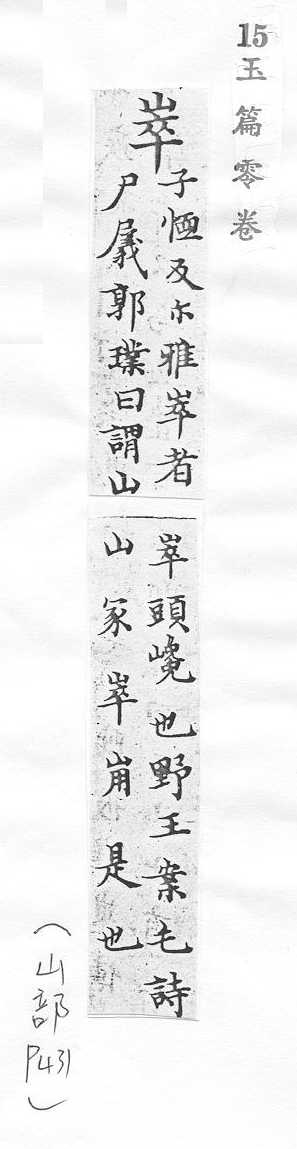 15玉篇零卷
崒
子恤反尒雅崒者
尸郭璞曰謂山
崒頭巉也野王案毛詩
山冢崒崩是也
(山部P431)